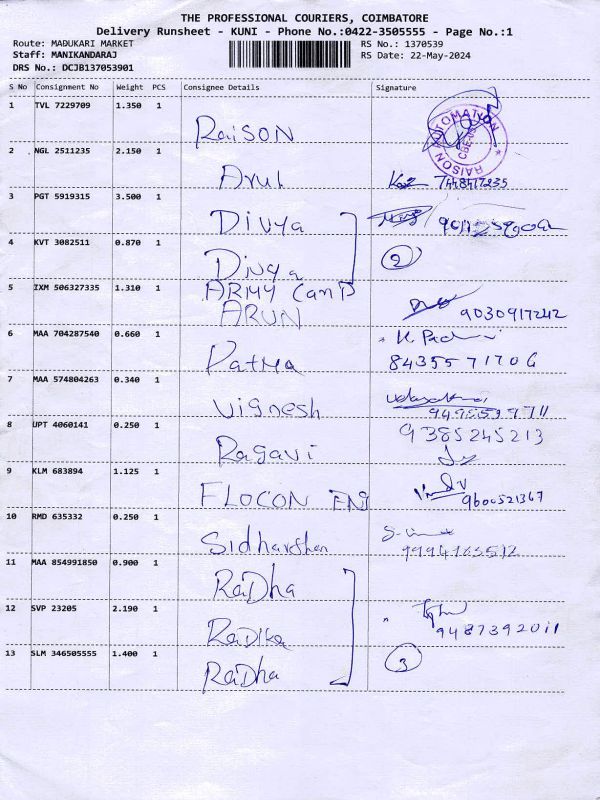 THE PROFESSIONAL COURIERS, COIMBATORE
Delivery Runsheet - KUNI - Phone No.:0422-3505555 - Page No.:1
Route: MADUKARI MARKET RS No.: 1370539
Staff: MANIKANDARAJ RS Date: 22-May-2024
DRS No.: DCJB137053901
S No Consignment No Weight PCS Consignee Details Signature
1 TVL 7229709 1.350 1 Raison
RAISON AUTOMATION
2 NGL 2511235 2.150 1 Arul
3 PGT 5919315 3.500 1 Divya
4 KVT 3082511 0.870 1 Divya 2
5 IXM 506327335 1.310 1 ARMY Camp
ARUN 9030917242
6 MAA 704287540 0.660 1 Patma K. Padmini
8435571706
7 MAA 574804263 0.340 1 Vignesh
8 UPT 4060141 0.250 1 Ragavi 9385245213
9 KLM 683894 1.125 1 FLOCON ENG 9600521367
10 RMD 635332 0.250 1 Sidharshan
11 MAA 854991850 0.900 1 RaDha
12 SVP 23205 2.190 1 RaDika 9487392011
13 SLM 346505555 1.400 1 RaDha 3